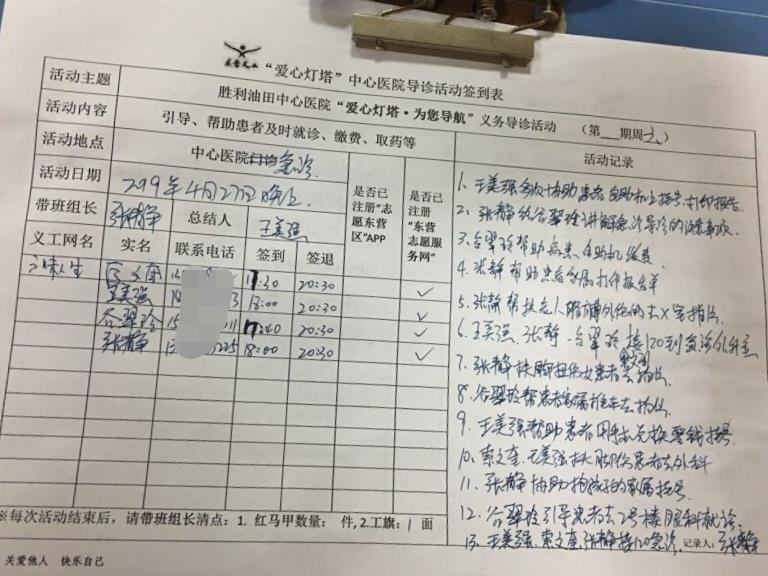 “爱心灯塔”中心医院导诊活动签到表
活动主题 胜利油田中心医院“爱心灯塔·为您导航”义务导诊活动 （第 期周六）
活动内容 引导、帮助患者及时就诊、缴费、取药等
活动地点 中心医院 急诊
活动日期 2019年4月27日晚上
带班组长 张静 总结人 王美强
是否已注册“志愿东营区”APP
是否已注册“东营志愿服务网”
义工网名 实名 联系电话 签到 签退
17:30 20:30
王美强 18:00 20:30 ✓
谷翠玲 17:40 20:30 ✓
张静 225 18:00 20:30 ✓
※每次活动结束后，请带班组长清点：1. 红马甲数量： 件，2.工旗：1 面
关爱他人 快乐自己
活动记录
1、王美强 协助患者自助机上挂号、打印报告
2、张静给谷翠玲讲解急诊导诊的注意事项
3、谷翠玲帮助 自助机缴费
4、张静帮助患者家属打印报告单
5、张静帮扶老人 去X室拍片
6、王美强、张静、谷翠玲接120到急诊外科
7、张静扶脚扭伤女患者去拍片
8、谷翠玲帮患者家属推车去拍片
9、王美强帮助患者用手机兑换零钱挂号
10、索文奎、王美强扶 患者去外科
11、张静协助抱孩子的家属挂号
12、谷翠玲引导患者去2号楼眼科就诊
13、王美强、索文奎、张静接120急诊
记录人：张静